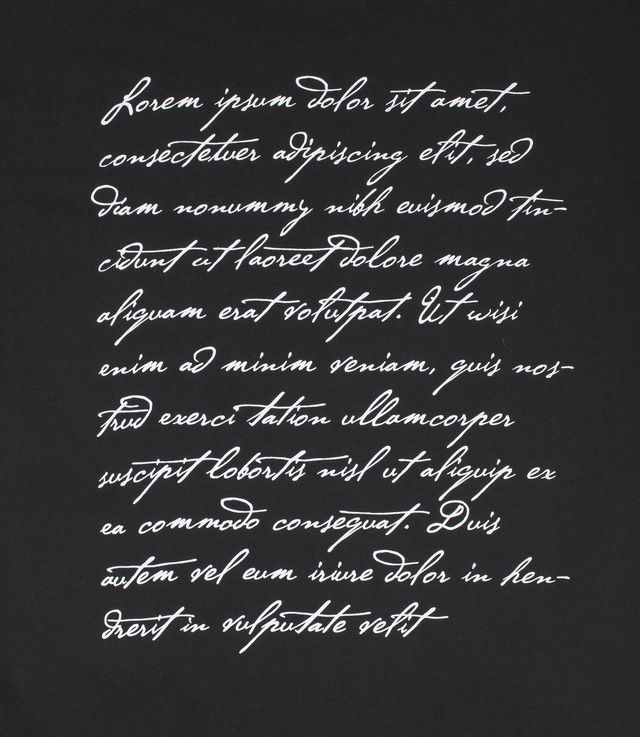 Lorem ipsum dolor sit amet,
consectetuer adipiscing elit, sed
diam nonummy nibh euismod tin-
cidunt ut laoreet dolore magna
aliquam erat volutpat. Ut wisi
enim ad minim veniam, quis nos-
trud exerci tation ullamcorper
suscipit lobortis nisl ut aliquip ex
ea commodo consequat. Duis
autem vel eum iriure dolor in hen-
drerit in vulputate velit